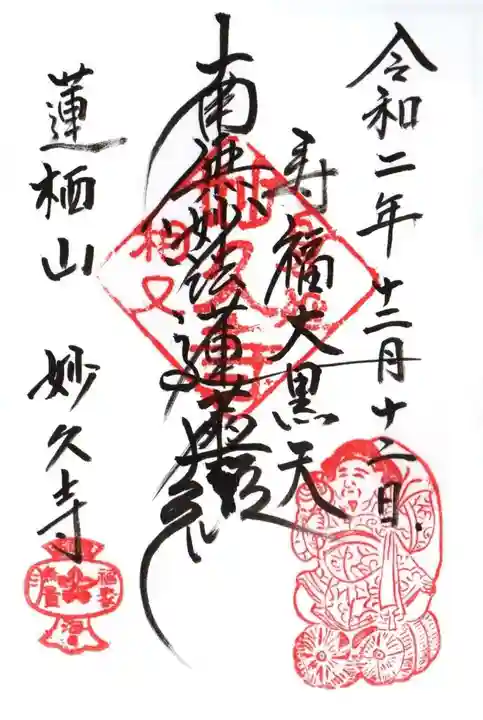 令和二年十二月十二日
寿福大黒天
南無妙法蓮華経
蓮栖山 妙久寺
妙久寺